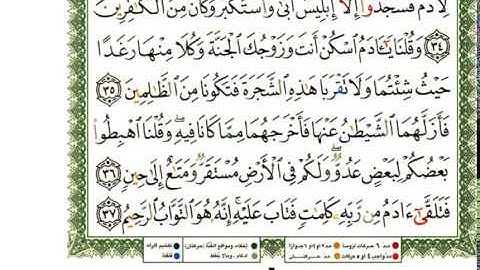 لِأٓدَمَ فَسَجَدُوٓا۟ إِلَّآ إِبْلِيسَ أَبَىٰ وَٱسْتَكْبَرَ وَكَانَ مِنَ ٱلْكَـٰفِرِينَ
٣٤ وَقُلْنَا يَـٰٓـَٔادَمُ ٱسْكُنْ أَنتَ وَزَوْجُكَ ٱلْجَنَّةَ وَكُلَا مِنْهَا رَغَدًا
حَيْثُ شِئْتُمَا وَلَا تَقْرَبَا هَـٰذِهِ ٱلشَّجَرَةَ فَتَكُونَا مِنَ ٱلظَّـٰلِمِينَ ٣٥
فَأَزَلَّهُمَا ٱلشَّيْطَـٰنُ عَنْهَا فَأَخْرَجَهُمَا مِمَّا كَانَا فِيهِ ۖ وَقُلْنَا ٱهْبِطُوا۟
بَعْضُكُمْ لِبَعْضٍ عَدُوٌّ ۖ وَلَكُمْ فِى ٱلْأَرْضِ مُسْتَقَرٌّ وَمَتَـٰعٌ إِلَىٰ حِينٍ ٣٦
فَتَلَقَّىٰٓ ءَادَمُ مِن رَّبِّهِۦ كَلِمَـٰتٍ فَتَابَ عَلَيْهِ ۚ إِنَّهُۥ هُوَ ٱلتَّوَّابُ ٱلرَّحِيمُ ٣٧